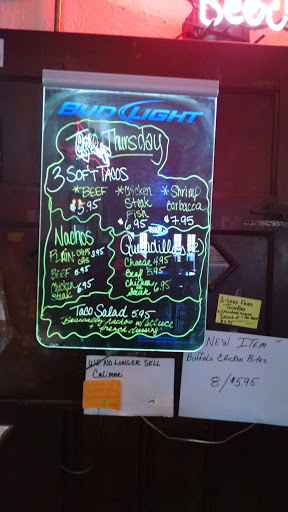 Beer
BUD LIGHT
Thursday
3 SOFT TACOS
*BEEF *Chicken *Shrimp
$5.95 Steak Barbacoa
Fish $7.95
$6.95
Nachos
PLAIN-CHIPS 3.95
BEEF 5.95
Chicken
Steak 6.95
Quesadillas
Cheese 4.95
Beef 5.95
Chicken
Steak 6.95
Taco Salad 5.95
Basically nachos w/lettuce
french dressing
WE NO LONGER SELL
Calimari
NEW ITEM
Buffalo Chicken Bites
8/$5.95